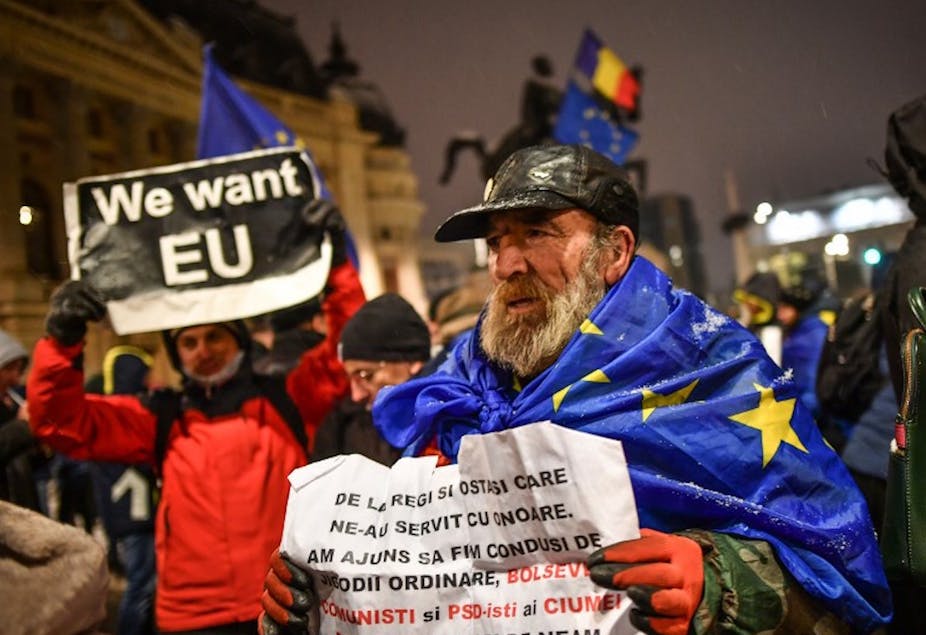 We want
EU
DE LA REGI SI OSTASI CARE
NE-AU SERVIT CU ONOARE.
AM AJUNS SA FIM CONDUSI DE
JIGODII ORDINARE,
COMUNISTI si PSD-isti ai CIUMEI
NEAM
1